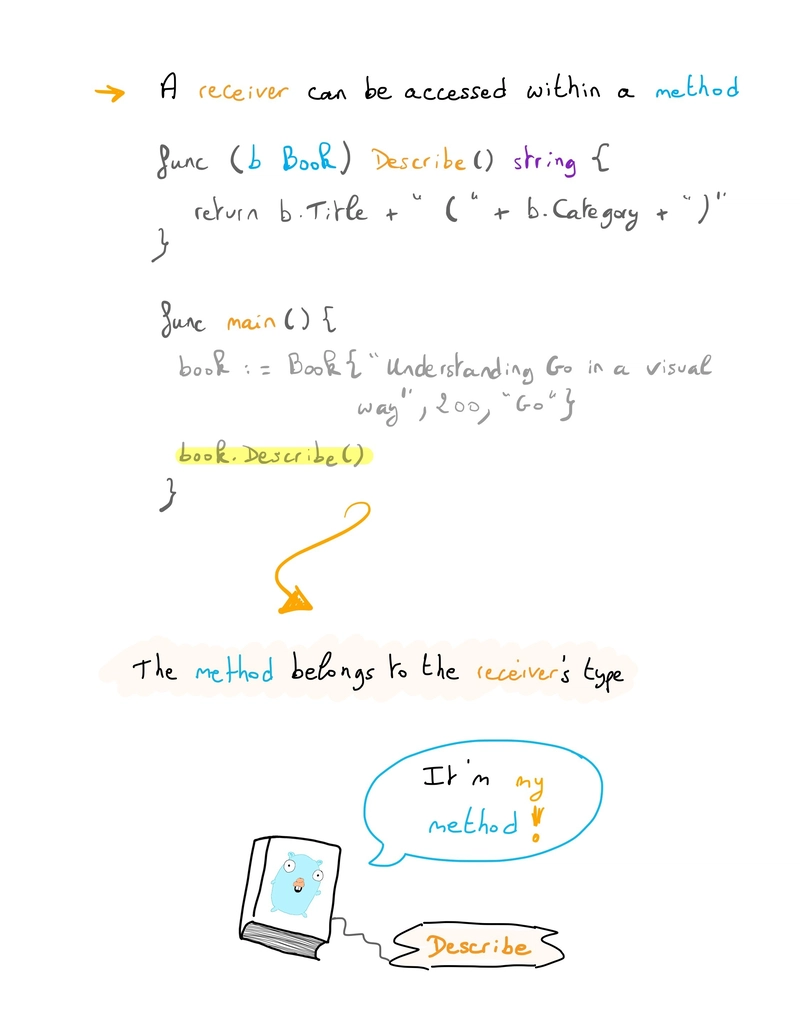 → A receiver can be accessed within a method
func (b Book) Describe() string {
return b.Title + " (" + b.Category + ")"
}
func main() {
book := Book{"Understanding Go in a visual
way", 200, "Go"}
book.Describe()
}
The method belongs to the receiver's type
It'm my
method!
Describe